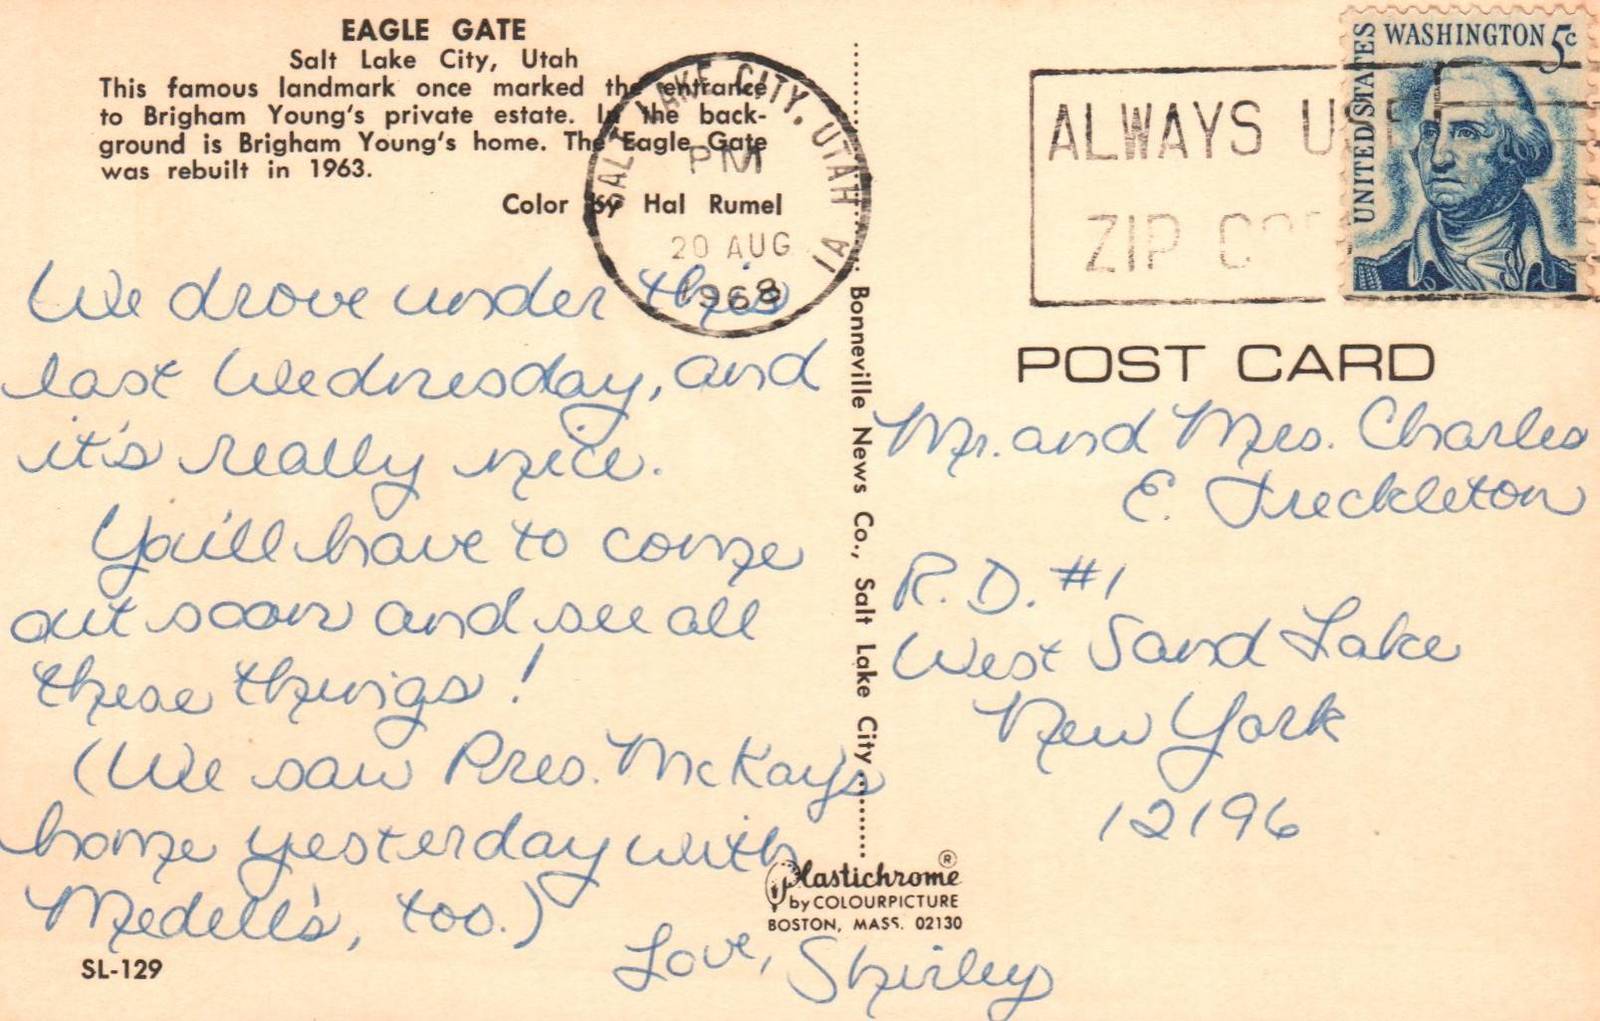 EAGLE GATE
Salt Lake City, Utah
This famous landmark once marked the entrance
to Brigham Young's private estate. In the back-
ground is Brigham Young's home. The Eagle Gate
was rebuilt in 1963.
Color by Hal Rumel
SALT LAKE CITY, UTAH
PM
20 AUG
1968
1A
ALWAYS USE
ZIP CO
UNITED STATES
WASHINGTON 5c
We drove under this
last Wednesday, and
it's really nice.
You'll have to come
out soon and see all
these things!
(We saw Pres. McKay's
home yesterday with
Medell's, too.)
Love, Shirley
SL-129
Bonneville News Co., Salt Lake City
Plastichrome ®
by COLOURPICTURE
BOSTON, MASS. 02130
POST CARD
Mr. and Mrs. Charles
E. Freckleton
R.D. #1
West Sand Lake
New York
12196